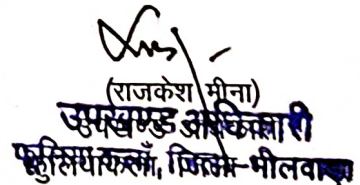 (राजकेश मीना)
उपखण्ड अधिकारी
फूलियाकलाँ, जिला-भीलवाडा